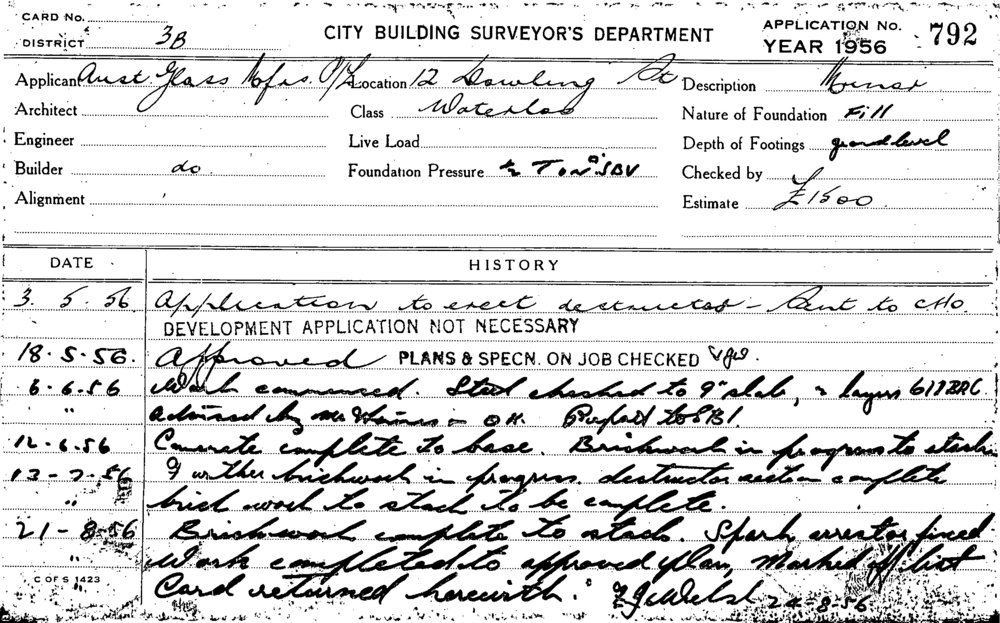 CARD No.
DISTRICT 3B
CITY BUILDING SURVEYOR'S DEPARTMENT
APPLICATION No. 792
YEAR 1956
Applicant Aust. Glass Mfrs. P/L Location 12 Dowling St Description Minor
Architect Class Waterloo Nature of Foundation Fill
Engineer Live Load Depth of Footings ground level
Builder do. Foundation Pressure ½ Ton SBV Checked by
Alignment Estimate £1500
DATE HISTORY
3. 5. 56 Application to erect destructor - Sent to CHO.
DEVELOPMENT APPLICATION NOT NECESSARY
18.5.56. Approved PLANS & SPECN. ON JOB CHECKED
6.6.56 Work commenced. Steel checked to 9" slab, layers 611 BRC
" Advised by Mr - OK.
12.6.56 Concrete complete to base. Brickwork in progress to
13-7-56 Further brickwork in progress. destructor section complete
" brick work to stack to be complete.
21-8-56 Brickwork complete to stack. Spark arrestor fixed
" Work completed to approved plan, Marked off list
" Card returned herewith. Welsh 24-8-56
C OF S 1423